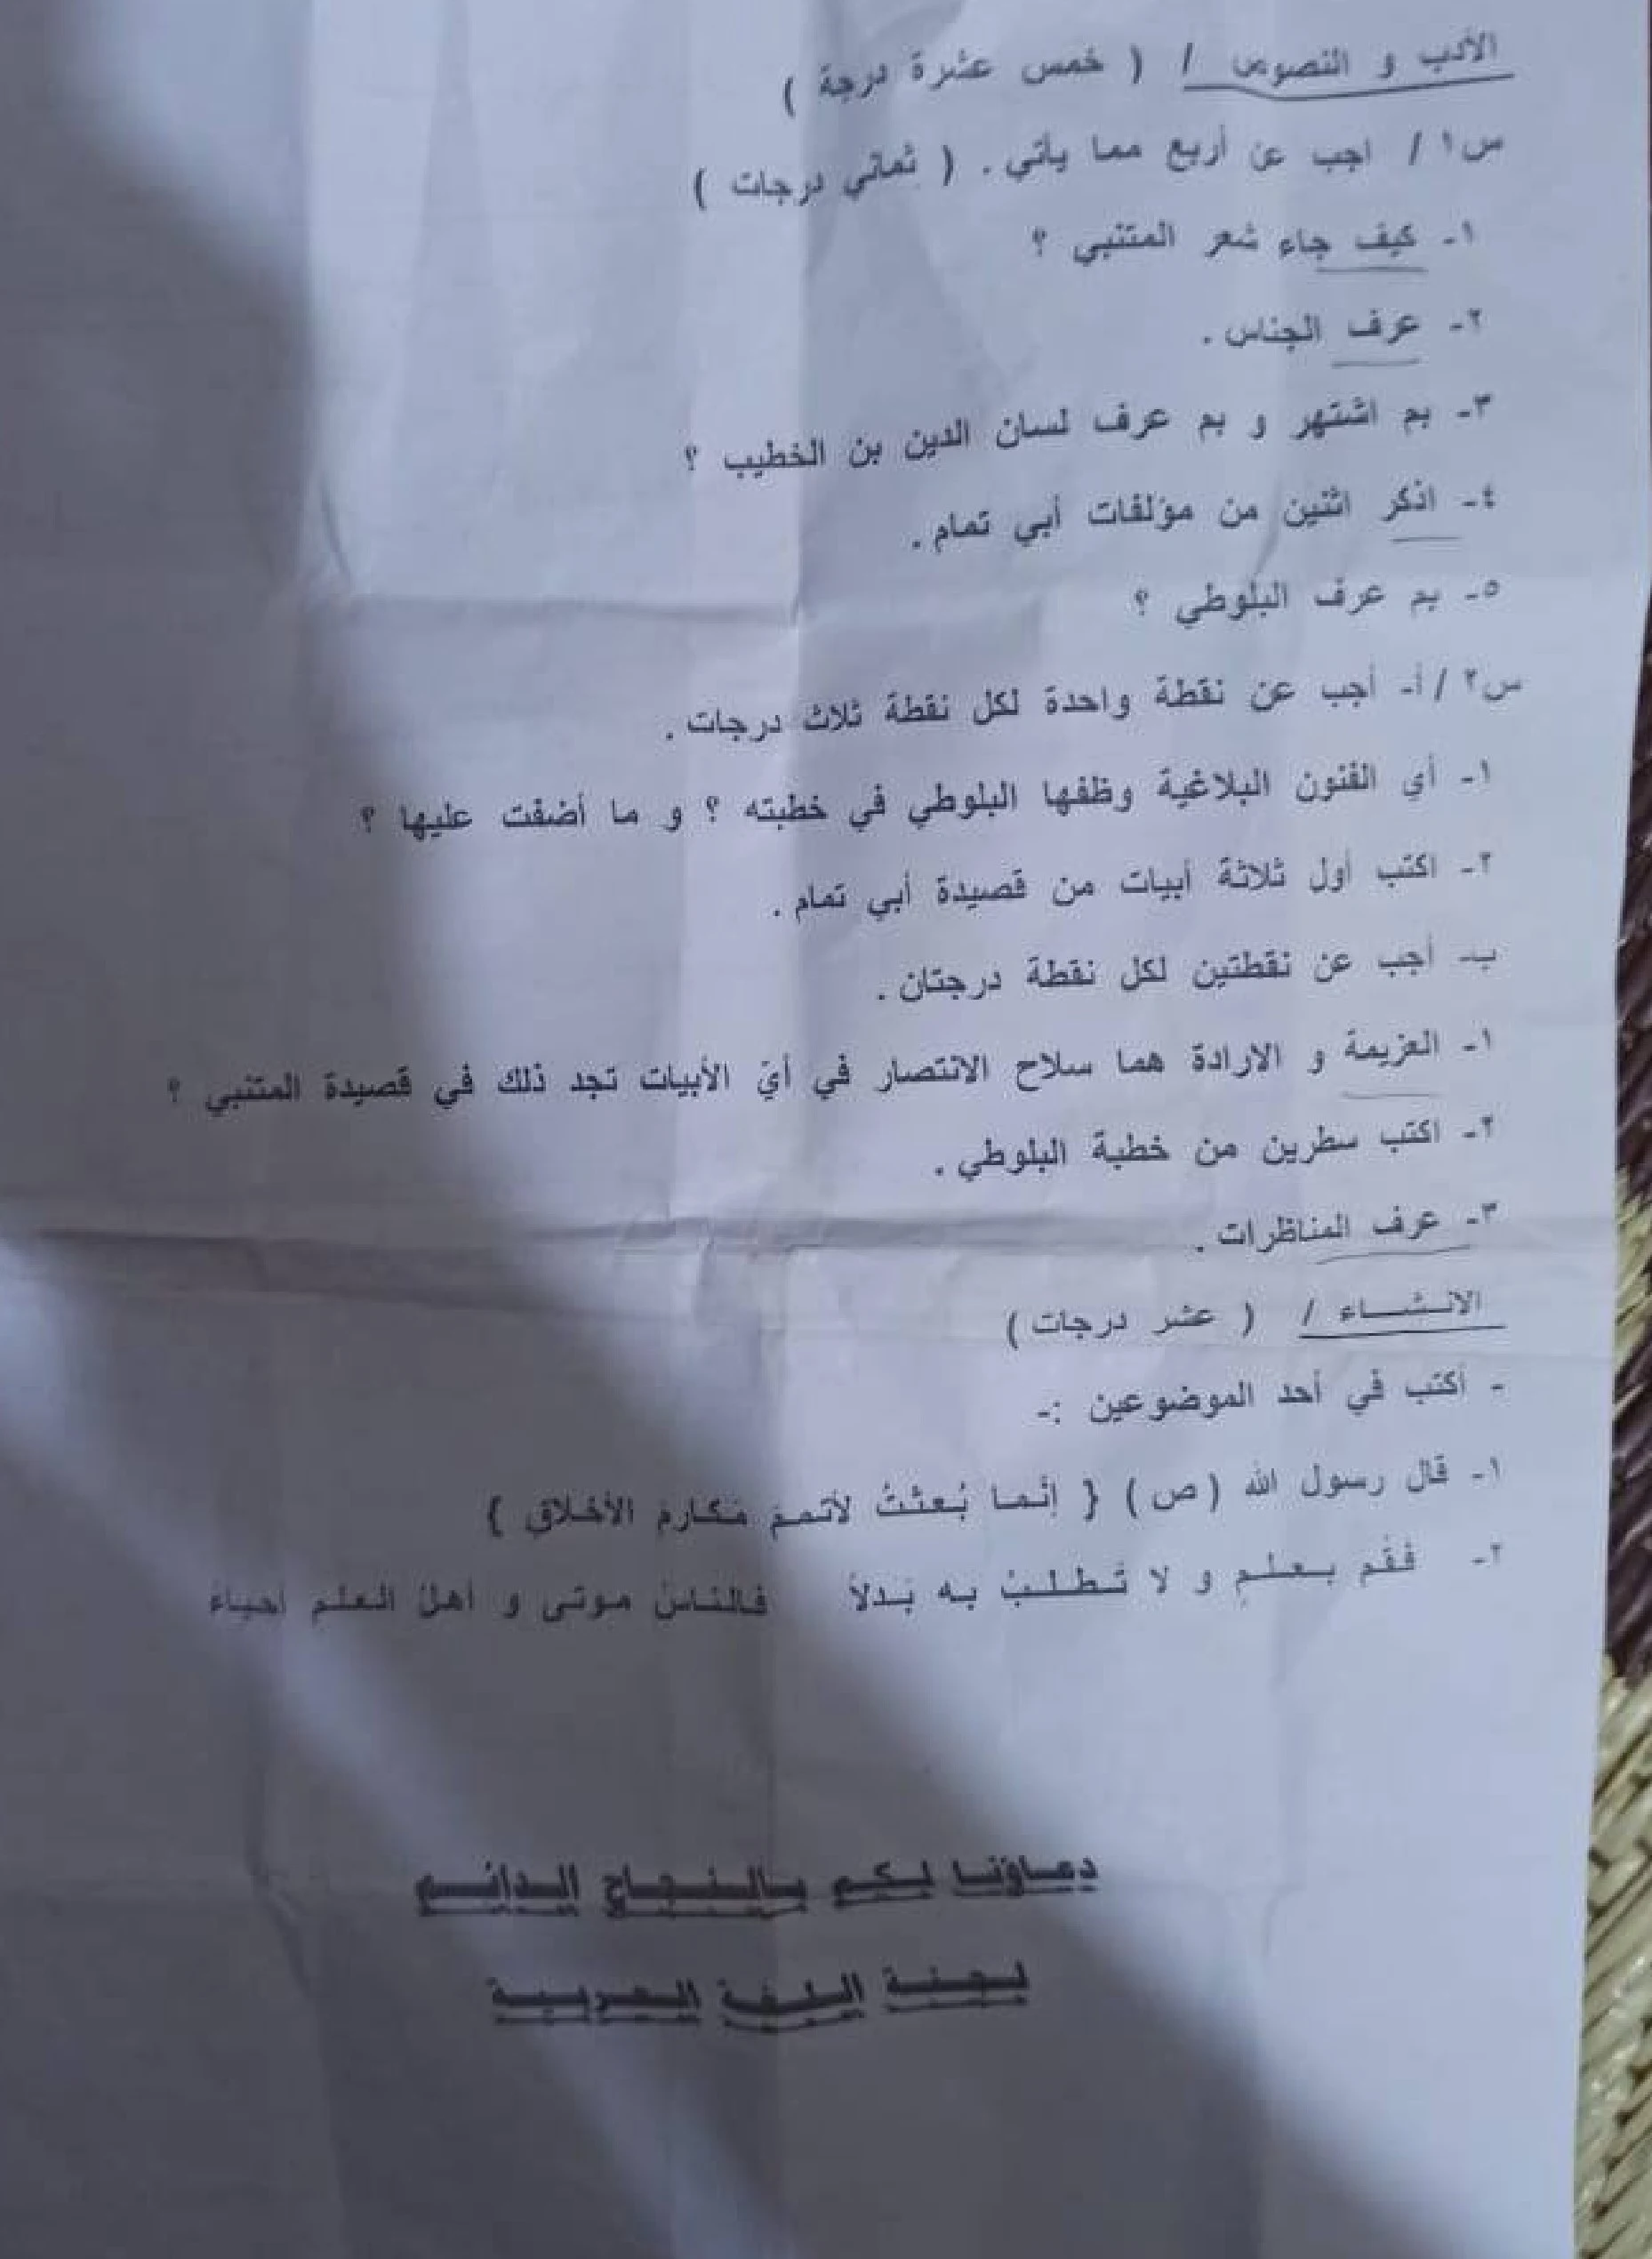 الأدب و النصوص / ( خمس عشرة درجة )
س١ / اجب عن أربع مما يأتي . ( ثماني درجات )
١- كيف جاء شعر المتنبي ؟
٢- عرف الجناس .
٣- بم اشتهر و بم عرف لسان الدين بن الخطيب ؟
٤- اذكر اثنين من مؤلفات أبي تمام .
٥- بم عرف البلوطي ؟
س٢ / أ- أجب عن نقطة واحدة لكل نقطة ثلاث درجات .
١- أي الفنون البلاغية وظفها البلوطي في خطبته ؟ و ما أضفت عليها ؟
٢- اكتب أول ثلاثة أبيات من قصيدة أبي تمام .
ب- أجب عن نقطتين لكل نقطة درجتان .
١- العزيمة و الارادة هما سلاح الانتصار في أيّ الأبيات تجد ذلك في قصيدة المتنبي ؟
٢- اكتب سطرين من خطبة البلوطي .
٣- عرف المناظرات .
الانشــاء / ( عشر درجات )
- أكتب في أحد الموضوعين :-
١- قال رسول الله ( ص ) { إنّما بُعثتُ لأتممَ مَكارمَ الأخلاقِ }
٢- فَقُم بـعـلـمٍ و لا تَـطـلـبُ به بَـدلاً فالناسُ موتى و أهلُ العلمِ أحياءُ
دعـاؤنـا لـكـم بـالـنـجـاح الـدائـم
لـجـنـة الـلـغـة الـعـربـيـة